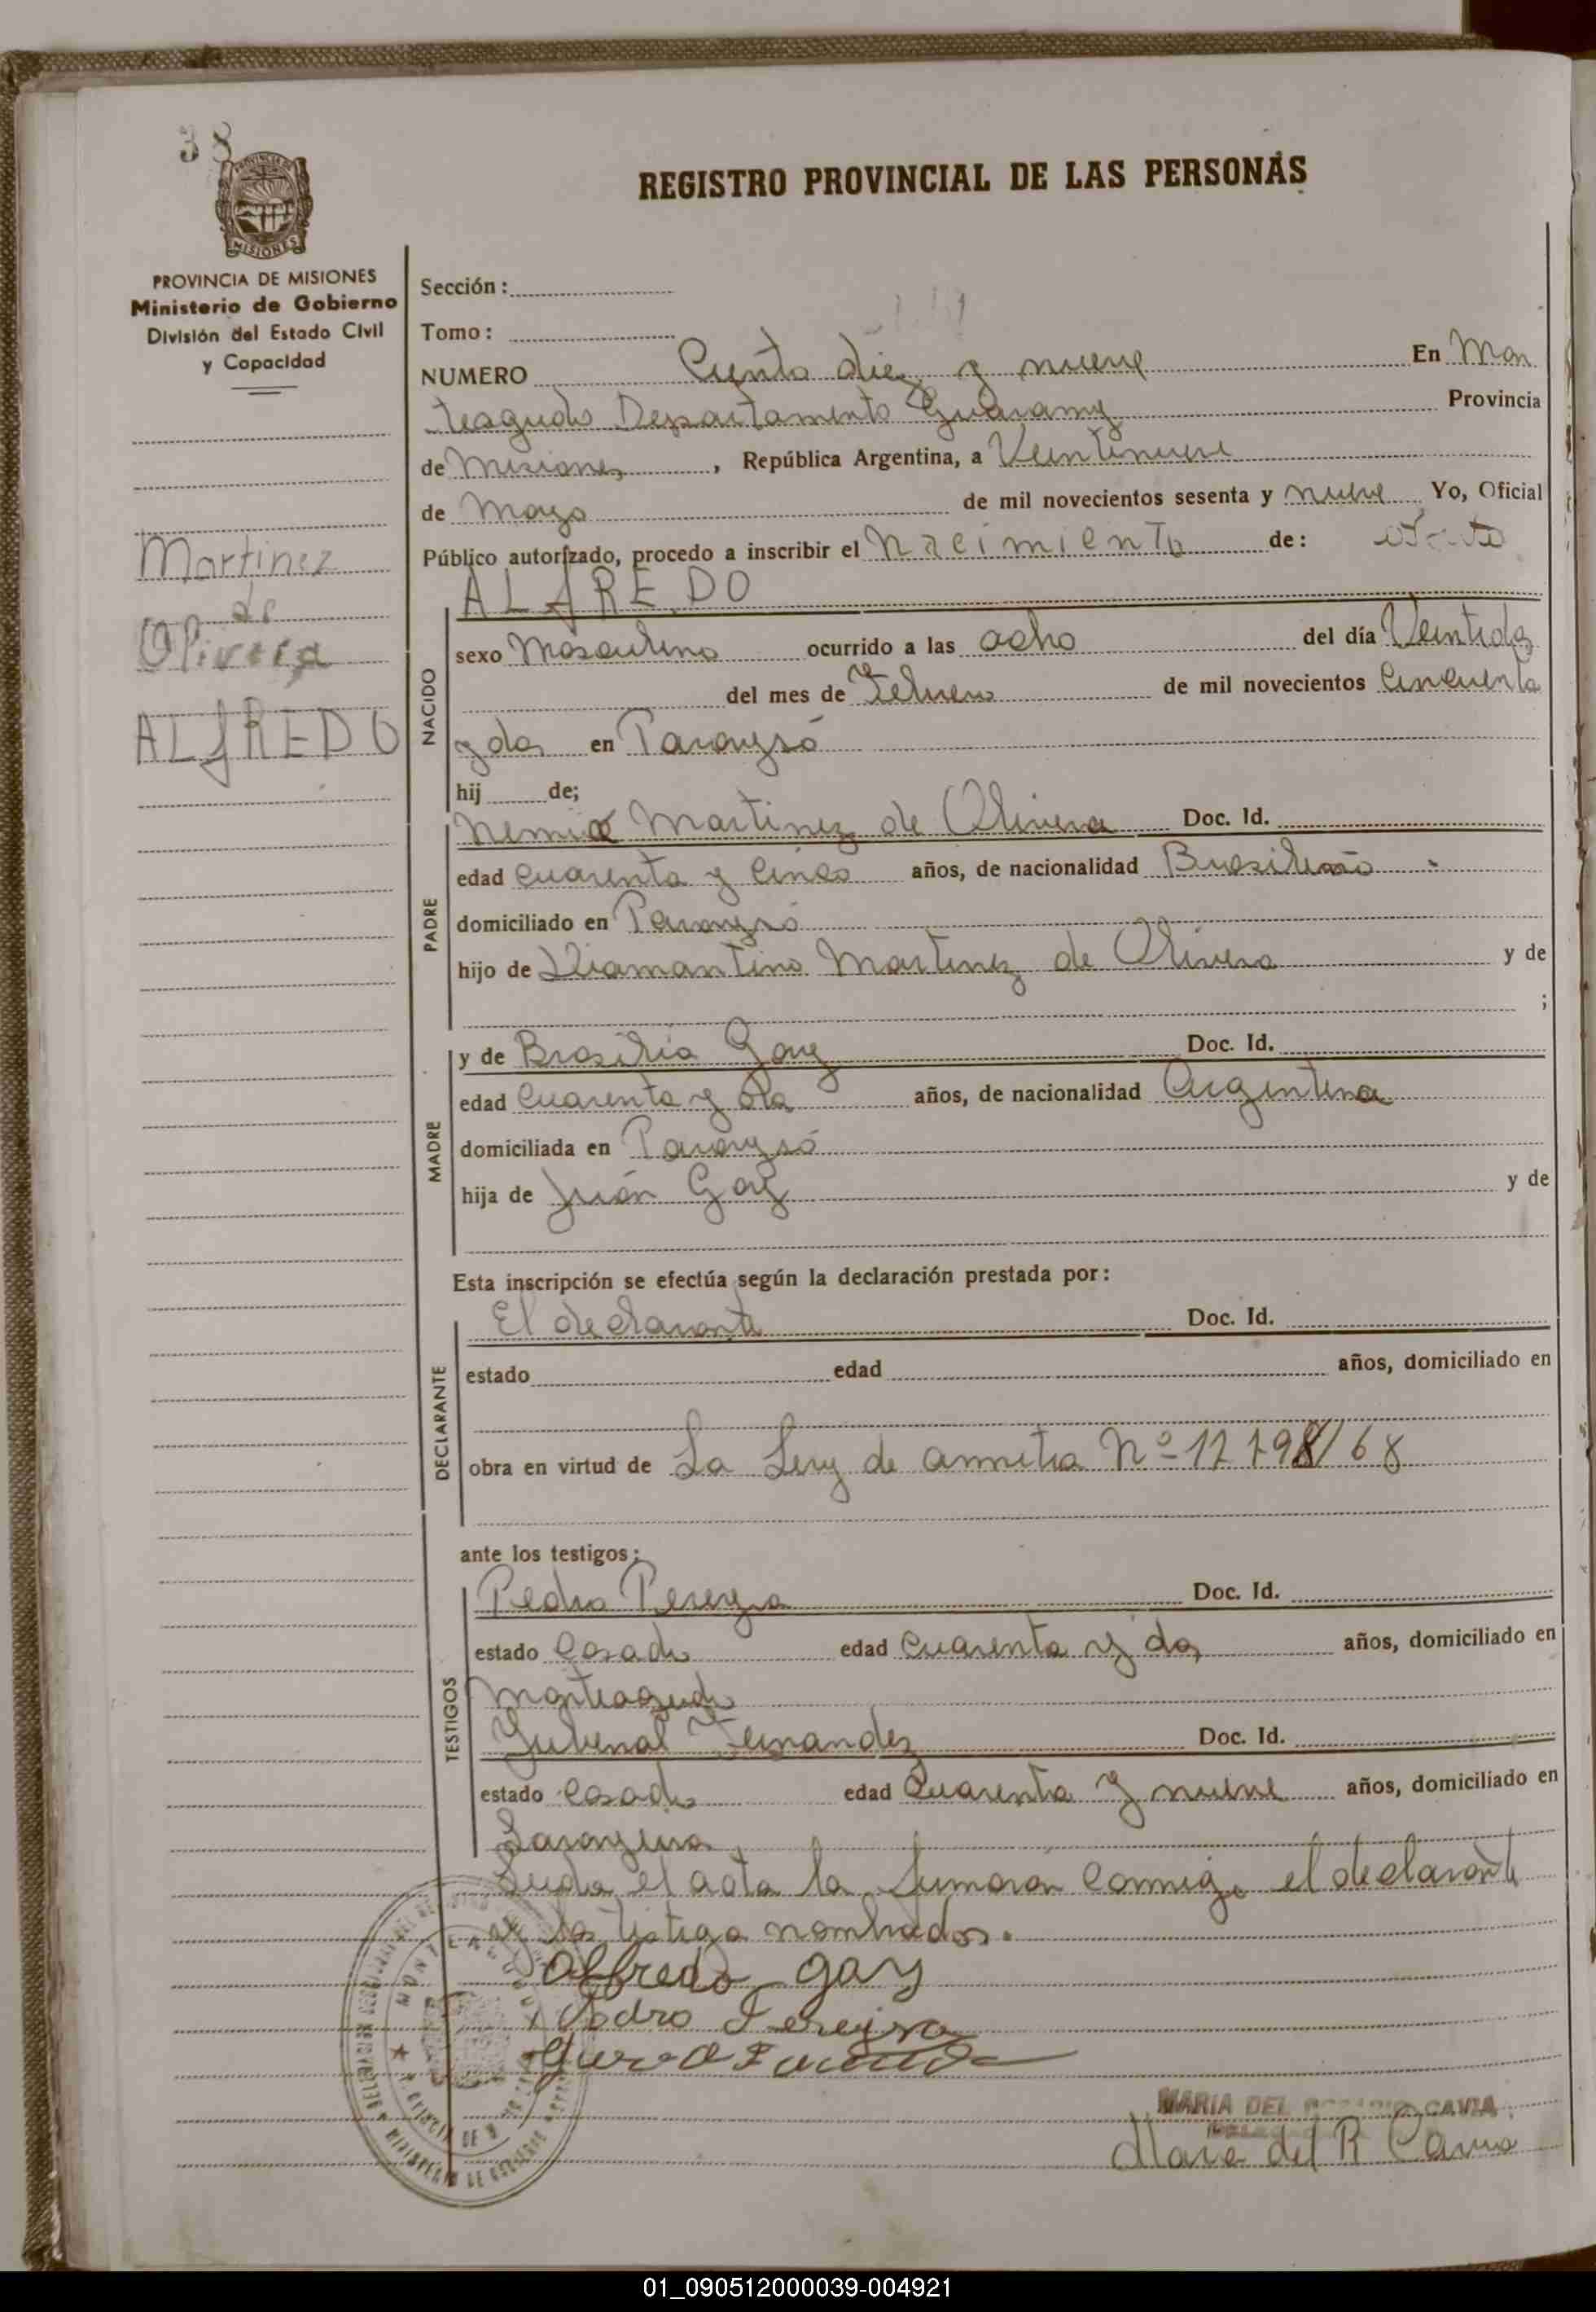 38
REGISTRO PROVINCIAL DE LAS PERSONAS
PROVINCIA DE
MISIONES
PROVINCIA DE MISIONES
Ministerio de Gobierno
División del Estado Civil
y Capacidad
Martinez
de
Olivera
ALfREDO
Sección :
Tomo :
NUMERO Ciento diez y nueve En Mon
teagudo Departamento Guarany Provincia
de Misiones, República Argentina, a Veintinueve
de Mayo de mil novecientos sesenta y nueve Yo, Oficial
Público autorizado, procedo a inscribir el nacimiento de:
ALfREDO
NACIDO
sexo Masculino ocurrido a las ocho del día Veintidos
del mes de Febrero de mil novecientos Cincuenta
y dos en Paraysó
hij de;
PADRE
Martinez de Olivera Doc. Id.
edad cuarenta y cinco años, de nacionalidad
domiciliado en Paraysó
hijo de Diamantino Martinez de Olivera y de
;
MADRE
y de Brasilia Gay Doc. Id.
edad Cuarenta y años, de nacionalidad Argentina
domiciliada en Paraysó
hija de Juán Gay y de
Esta inscripción se efectúa según la declaración prestada por:
DECLARANTE
El declarante Doc. Id.
estado edad años, domiciliado en
obra en virtud de La Ley de Nº /68
ante los testigos:
TESTIGOS
Pedro Doc. Id.
estado Casado edad cuarenta y dos años, domiciliado en
Monteagudo
Jubenal Fernandez Doc. Id.
estado casado edad Cuarenta y nueve años, domiciliado en
el acta la conmigo el declarante
y los testigo nombrados.
Alfredo gay
Pedro Pereyra
MARIA DEL CAVIA
Maria del R Cavia
01_090512000039-004921